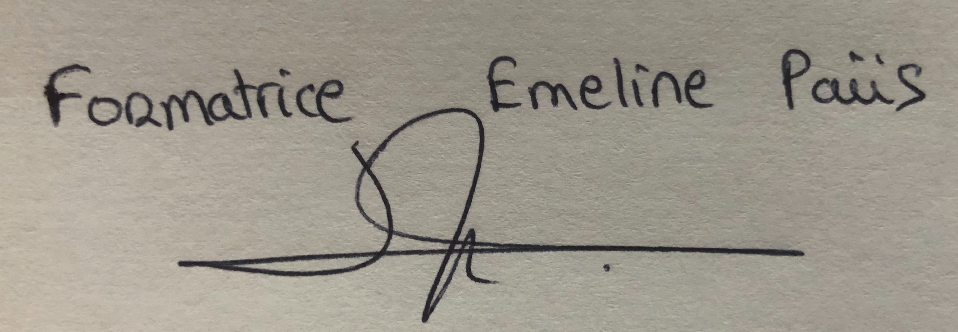 Formatrice Emeline Paüs